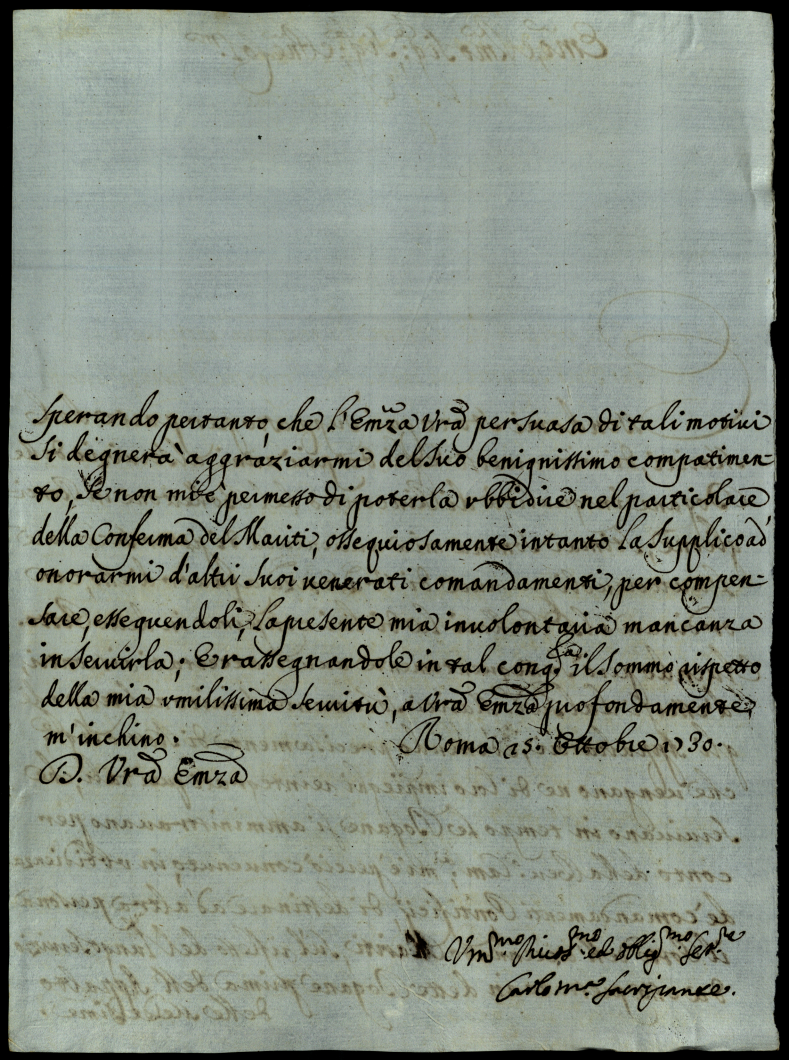 Sperando pertanto che l'Emz̃a Vrã persuasa di tali motivi
si degnerà aggraziarmi del suo benignissimo compatimen=
to, Se non mi è permesso di poterla ubbidire nel particolare
della Conferma del Mariti, ossequiosamente intanto la supplico ad
onorarmi d'altri suoi venerati comandamenti, per compen=
sare, esseguendoli, la presente mia involontaria mancanza
in servirla; E rassegnandole in tal cong.ra il sommo rispetto
della mia umilissima servitù, a Vrã Emzã profondamente
m'inchino. Roma 15. Ottobre 1730.
D. Vrã Emzã
Um̃o Ed obblig.mo Ser.re
Carlo M.a Sacripante.